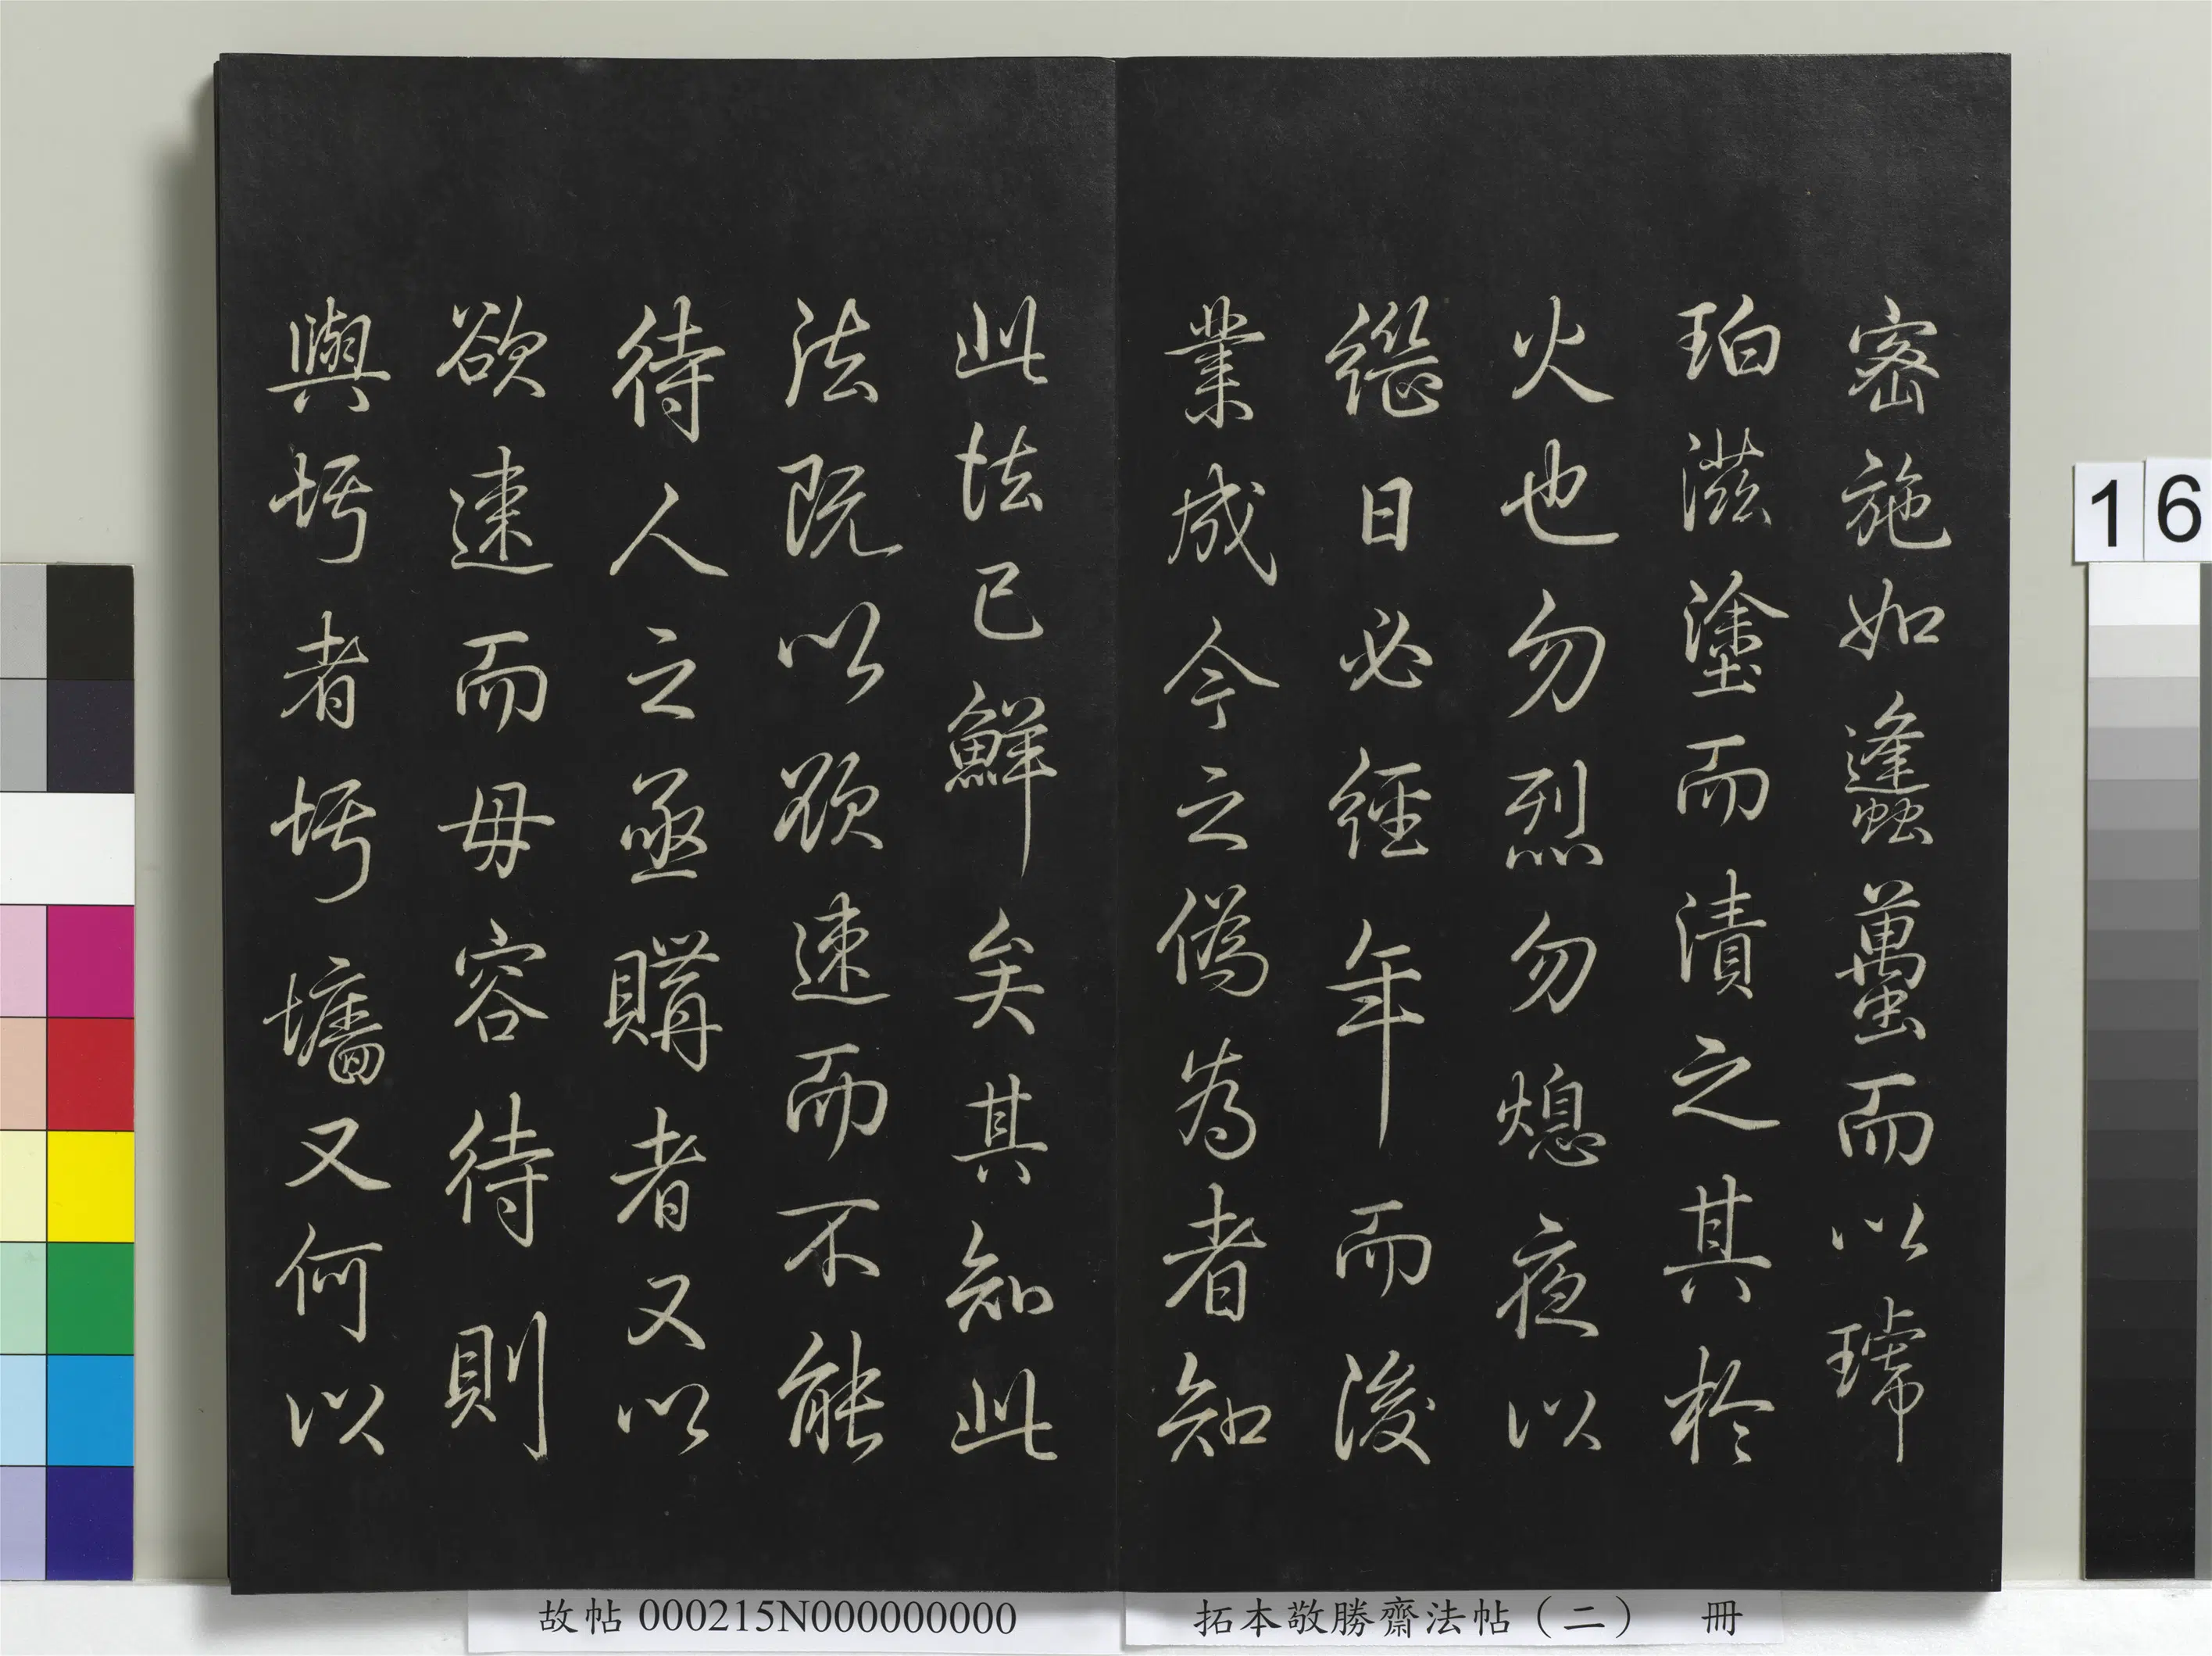 密施如蠭蠆而以㻿
珀滋塗而漬之其於
火也勿烈勿熄夜以
繼日必經年而後
業成今之偽為者知
此法已鮮矣其知此
法既以欲速而不能
待人之亟購者又以
欲速而毋容待則
與圬者圬墻又何以
16
故帖 000215N000000000
拓本敬勝齋法帖（二） 冊